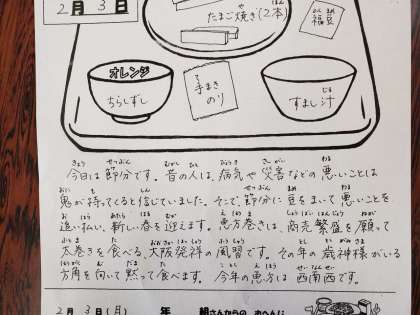 2月3日
たまご焼き(2本)
福豆
オレンジ
ちらしずし
手まき
のり
すまし汁
今日は節分です。昔の人は、病気や災害などの悪いことは
鬼が持ってくると信じていました。そこで、節分に豆をまいて悪いことを
追い払い、新しい春を迎えます。恵方巻きは、商売繁盛を願って
太巻きを食べる、大阪発祥の風習です。その年の歳神様がいる
方角を向いて黙って食べます。今年の恵方は西南西です。
2月3日(月) 年 組さんからの おへんじ